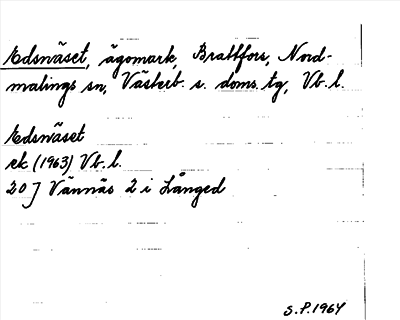 Edsnäset, ägomark, Brattfors, Nord-
malings sn, Västerb. s. doms. tg, Vb. l.
Edsnäset
ek (1963) Vb. l.
20 J Vännäs 2 i Långed
S.P. 1964